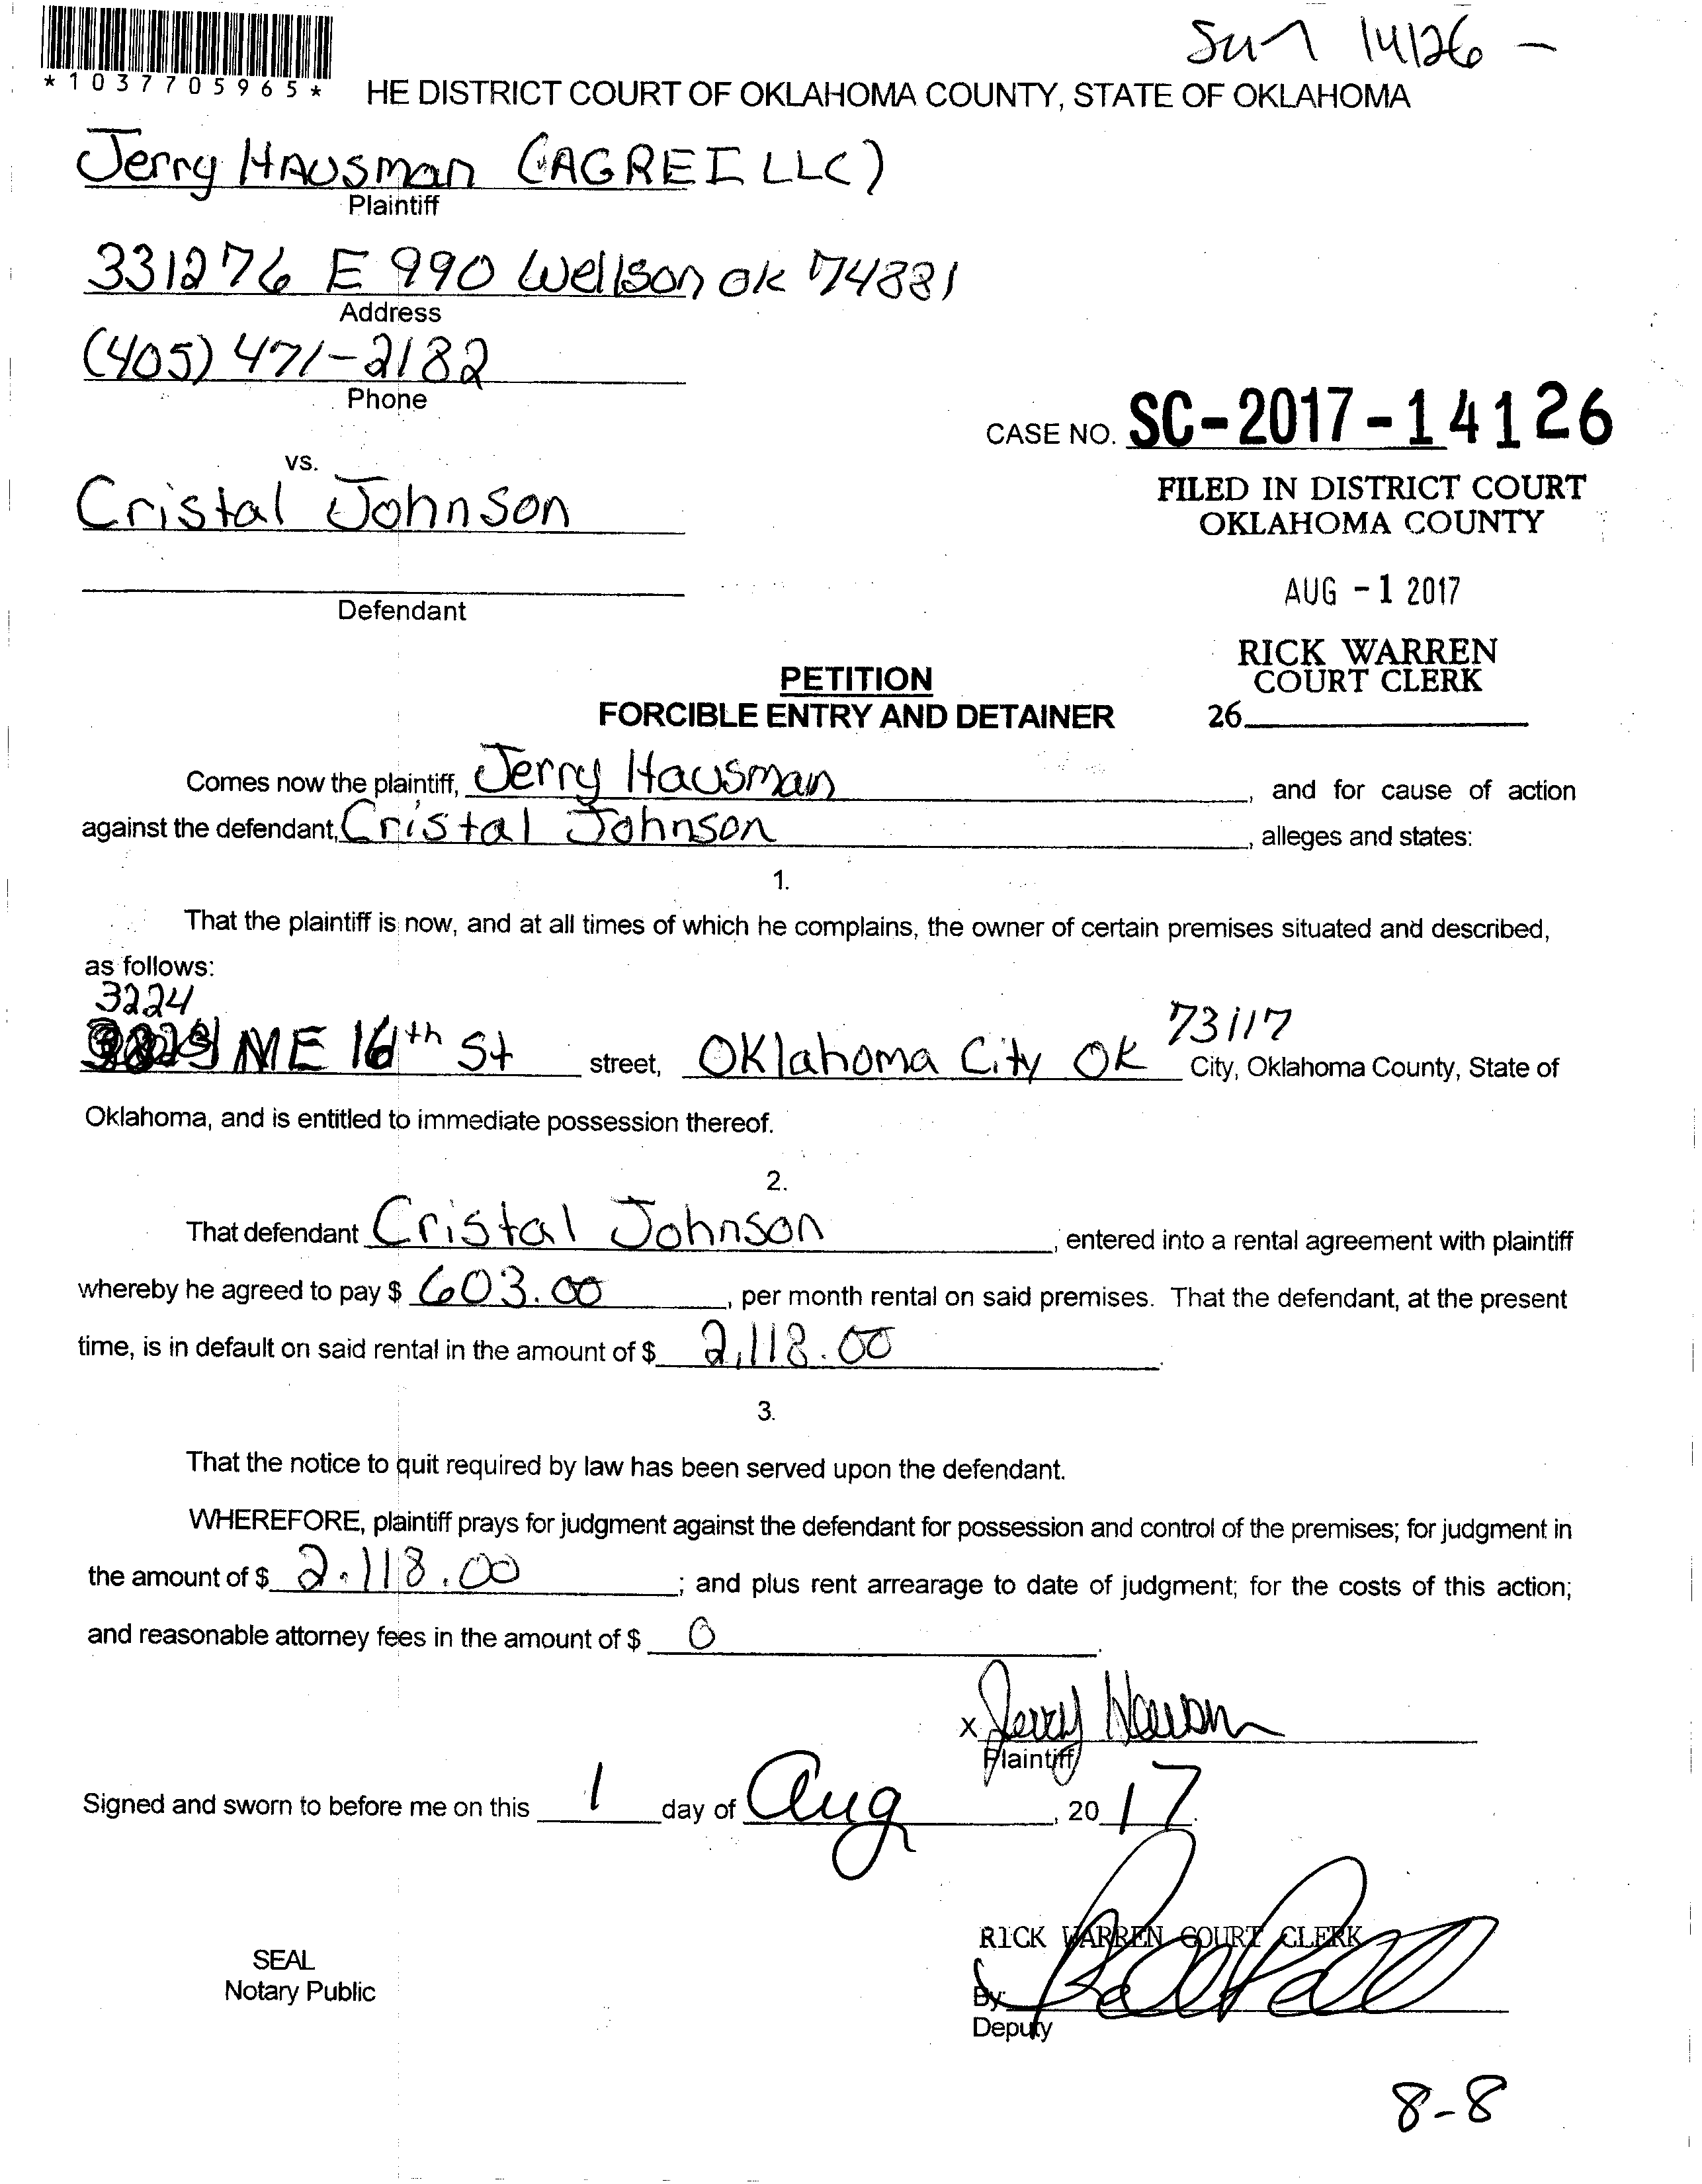 Sun 14126 -
*1037705965*
HE DISTRICT COURT OF OKLAHOMA COUNTY, STATE OF OKLAHOMA
Jerry Hausman (AGREI LLC)
Plaintiff
331276 E 990 Wellson ok 74881
Address
(405) 471-2182
Phone
CASE NO. SC-2017-14126
vs.
FILED IN DISTRICT COURT
OKLAHOMA COUNTY
Cristal Johnson
AUG -1 2017
Defendant
RICK WARREN
COURT CLERK
26
PETITION
FORCIBLE ENTRY AND DETAINER
Comes now the plaintiff, Jerry Hausman, and for cause of action
against the defendant, Cristal Johnson, alleges and states:
1.
That the plaintiff is now, and at all times of which he complains, the owner of certain premises situated and described,
as follows:
3224
NE 16th St street, Oklahoma City OK 73117 City, Oklahoma County, State of
Oklahoma, and is entitled to immediate possession thereof.
2.
That defendant Cristal Johnson, entered into a rental agreement with plaintiff
whereby he agreed to pay $ 603.00, per month rental on said premises. That the defendant, at the present
time, is in default on said rental in the amount of $ 2,118.00.
3.
That the notice to quit required by law has been served upon the defendant.
WHEREFORE, plaintiff prays for judgment against the defendant for possession and control of the premises; for judgment in
the amount of $ 2.118.00; and plus rent arrearage to date of judgment; for the costs of this action;
and reasonable attorney fees in the amount of $ 0.
x Jerry Hausman
Plaintiff
Signed and sworn to before me on this 1 day of Aug, 20 17.
RICK WARREN COURT CLERK
SEAL
Notary Public
By:
Deputy
8-8